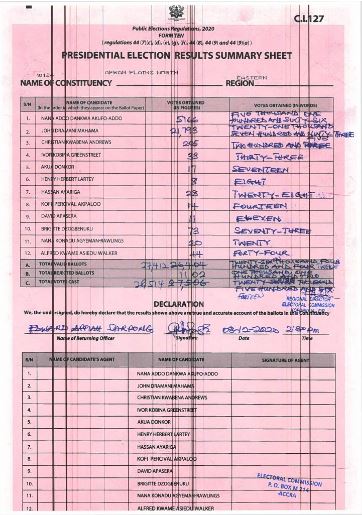 C.I.127
Public Elections Regulations, 2020
FORM TEN
PRESIDENTIAL ELECTION RESULTS SUMMARY SHEET
AFRAM PLAINS NORTH EASTERN
NAME OF CONSTITUENCY REGION
S/N NAME OF CANDIDATE VOTES OBTAINED VOTES OBTAINED (IN WORDS)
(In the order in which they appear on the Ballot Paper) (IN FIGURES)
1. NANA ADDO DANKWA AKUFO-ADDO 5166 FIVE THOUSAND ONE HUNDRED AND SIXTY-SIX
2. JOHN DRAMANI MAHAMA 21,793 TWENTY-ONE THOUSAND SEVEN HUNDRED AND NINTY-THREE
3. CHRISTIAN KWABENA ANDREWS 205 TWO HUNDRED AND FIVE
4. IVOR KOBINA GREENSTREET 33 THIRTY-THREE
5. AKUA DONKOR 17 SEVENTEEN
6. HENRY HERBERT LARTEY 8 EIGHT
7. HASSAN AYARIGA 28 TWENTY-EIGHT
8. KOFI PERCIVAL AKPALOO 14 FOURTEEN
9. DAVID APASERA 11 ELEVEN
10. BRIGITTE DZOGBENUKU 73 SEVENTY-THREE
11. NANA KONADU AGYEMAN-RAWLINGS 20 TWENTY
12. ALFRED KWAME ASIEDU WALKER 44 FORTY-FOUR
A. TOTAL VALID BALLOTS
B. TOTAL REJECTED BALLOTS 1102
C. TOTAL VOTES CAST
REGIONAL DIRECTOR
ELECTORAL COMMISSION
DECLARATION
We, the undersigned, do hereby declare that the results shown above are true and accurate account of the ballots in this Constituency
08/12/2020
Name of Returning Officer Signature Date Time
S/N NAME OF CANDIDATE'S AGENT NAME OF CANDIDATE SIGNATURE OF AGENT
1. NANA ADDO DANKWA AKUFO-ADDO
2. JOHN DRAMANI MAHAMA
3. CHRISTIAN KWABENA ANDREWS
4. IVOR KOBINA GREENSTREET
5. AKUA DONKOR
6. HENRY HERBERT LARTEY
7. HASSAN AYARIGA
8. KOFI PERCIVAL AKPALOO
9. DAVID APASERA
10. BRIGITTE DZOGBENUKU
11. NANA KONADU AGYEMAN-RAWLINGS
12. ALFRED KWAME ASIEDU WALKER
ELECTORAL COMMISSION
P. O. BOX M 214
ACCRA